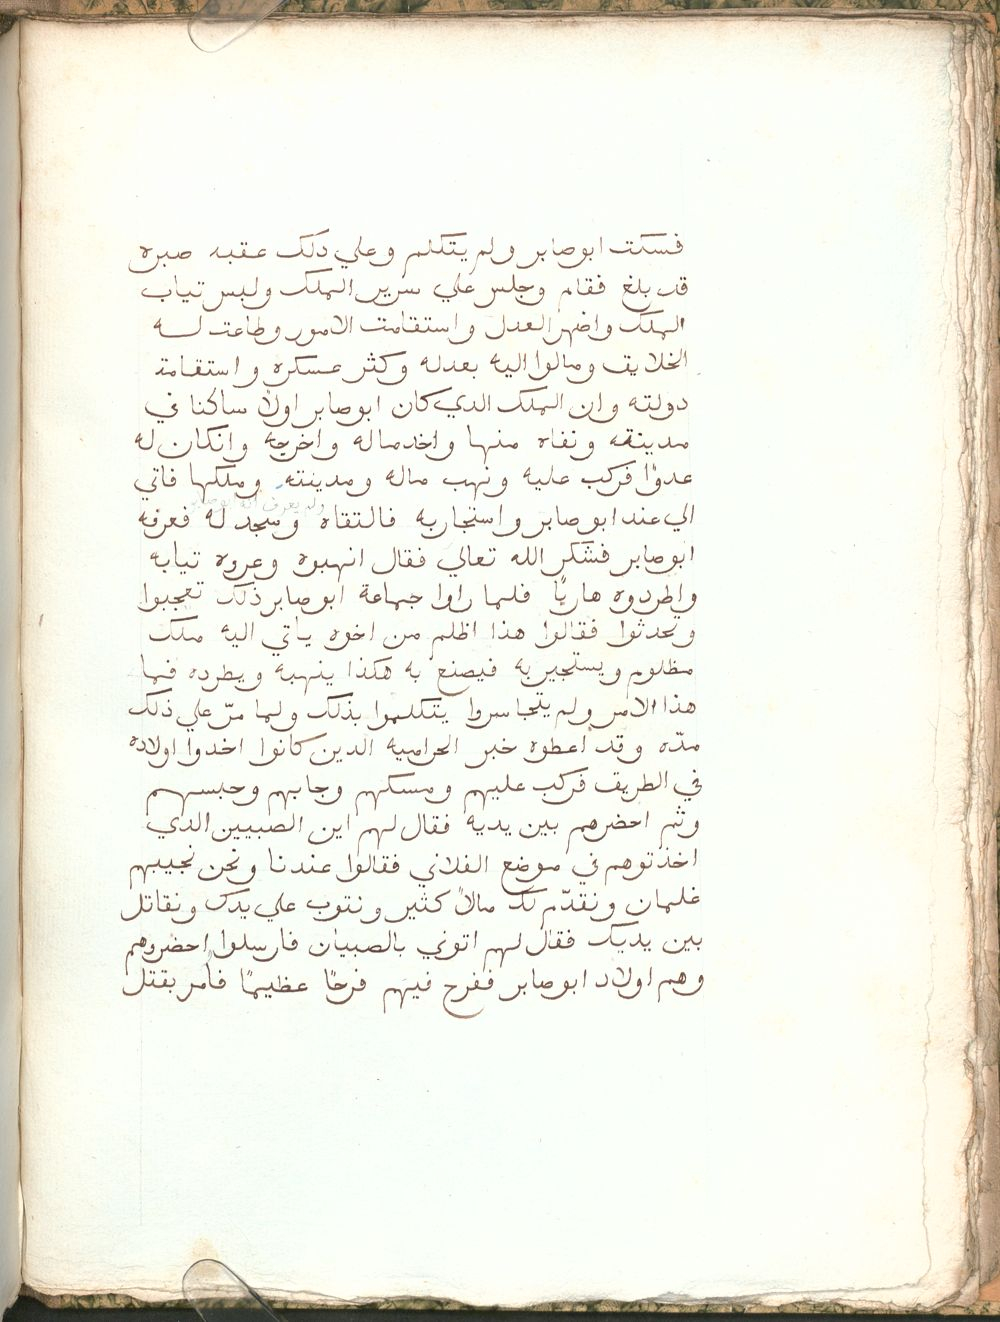 فسكت ابوصابر ولم يتكلم وعلي دلك عقبه صبره
قد بلغ فقام وجلس علي سرير الملك ولبس تياب
الملك واضهر العدل واستقامت الامور وطاعت له
الخلايق ومالوا اليه بعدله وكثر عسكره واستقامة
دولته وان الملك الدي كان ابوصابر اولا ساكنا في
مدينته ونفاه منها واخد ماله واخرجه وانكان له
عدوًا فركب عليه ونهب ماله ومدينته وملكها فاتي
ولم يعرف انه ابو صابر
الي عند ابوصابر واستجار به فالتقاه وسجد له فعرفه
ابوصابر فشكر الله تعالي فقال انهبوه وعروه تيابه
واطردوه هاربًا فلما راوا جماعة ابوصابر ذلك تعجبوا
وتحدثوا فقالوا هذا اظلم من اخوه ياتي اليه ملك
مظلوم ويستجير به فيصنع به هكذا ينهبه ويطرده فما
هذا الامر ولم يتجاسروا يتكلموا بذلك ولما مرّ علي ذلك
مدّه وقد اعطوه خبر الحراميه الدين كانوا اخدوا اولاده
في الطريق فركب عليهم ومسكهم وجابهم وحبسهم
وثم احضرهم بين يديه فقال لهم اين الصبيين الدي
اخذتوهم في موضع الفلاني فقالوا عندنا ونحن نجيبهم
غلمان ونقدّم لك مالاً كثير ونتوب علي يدك ونقاتل
بين يديك فقال لهم اتوني بالصبيان فارسلوا احضروهم
وهم اولاد ابوصابر ففرح فيهم فرحًا عظيمًا فأمر بقتل